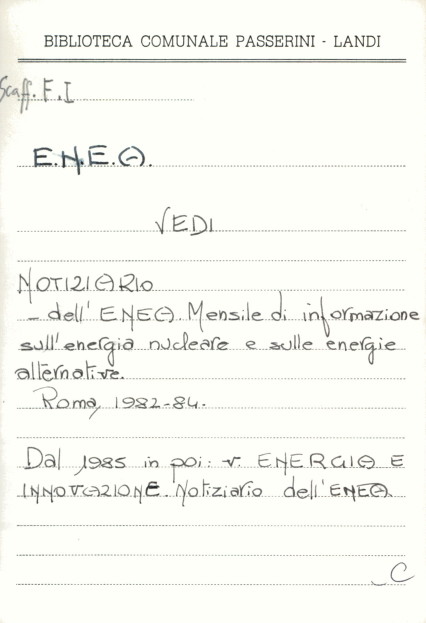 BIBLIOTECA COMUNALE PASSERINI - LANDI
Scaff. F. I
E.N.E.A.
VEDI
NOTIZIARIO
- dell' ENEA. Mensile di informazione
sull'energia nucleare e sulle energie
alternative.
Roma, 1982-84.
Dal 1985 in poi: v. ENERGIA E
INNOVAZIONE. Notiziario dell'ENEA.
C